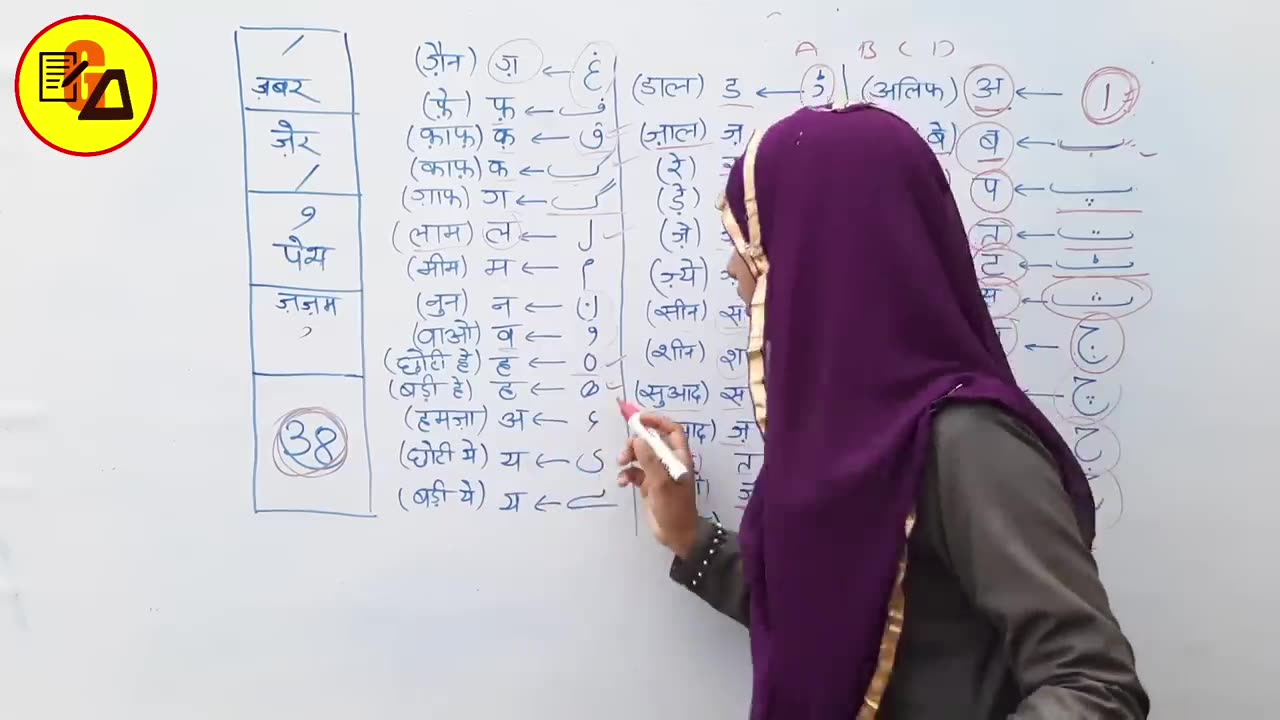 ज़बर
ज़ेर
पेश
ज़ज़म
38
(ग़ैन) ग़ ← غ
(फ़े) फ़ ← ف
(क़ाफ़) क़ ← ق
(काफ़) क ← ک
(गाफ) ग ← گ
(लाम) ल ← ل
(मीम) म ← م
(नुन) न ← ن
(वाओ) व ← و
(छोटी हे) ह ← ه
(बड़ी हे) ह ← ھ
(हमज़ा) अ ← ء
(छोटी ये) य ← ی
(बड़ी ये) य ← ے
A B C D
(डाल) ड ← ڈ
(ज़ाल) ज़
(रे)
(ड़े)
(ज़े)
(ज़्ये)
(सीन) स
(शीन) श
(सुआद) स
ज़
त
(अलिफ) अ ← ا
बे) ब ← ب
प ← پ
त ← ت
ट ← ٹ
स ← ث
← ج
← چ
ح